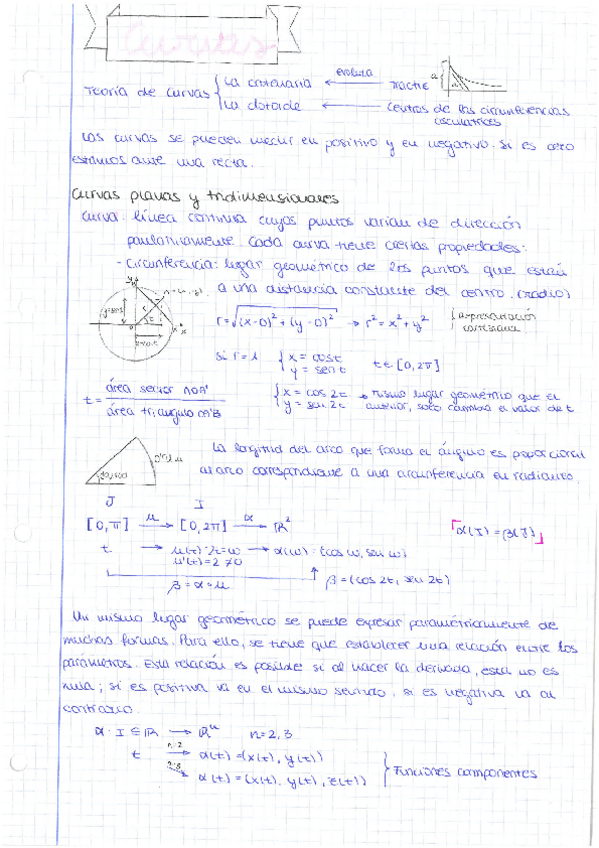 Curvas
Teoría de curvas { La catenaria ← evoluta Tractriz
La clotoide ← Centros de las circunferencias osculatrices
Las curvas se pueden medir en positivo y en negativo. Si es cero
estamos ante una recta.
Curvas planas y tridimensionales
Curva: línea continua cuyos puntos varían de dirección
paulatinamente. Cada curva tiene ciertas propiedades:
- Circunferencia: lugar geométrico de los puntos que están
a una distancia constante del centro. (radio)
r = √(x-0)² + (y-0)² → r² = x² + y² { representación cartesiana
si r = 1 { x = cos t
y = sen t t ∈ [0, 2π]
t = área sector / área triángulo
{ x = cos 2t → mismo lugar geométrico que el
y = sen 2t anterior, solo cambia el valor de t
La longitud del arco que forma el ángulo es proporcional
al arco correspondiente a una circunferencia en radianes.
J I
[0, π] μ→ [0, 2π] α→ ℝ²
[α(I) = β(J)]
t → μ(t) = 2t = ω → α(ω) = (cos ω, sen ω)
μ'(t) = 2 ≠ 0
β = α ∘ μ β = (cos 2t, sen 2t)
Un mismo lugar geométrico se puede expresar paramétricamente de
muchas formas. Para ello, se tiene que establecer una relación entre los
parámetros. Esta relación es posible si al hacer la derivada, esta no es
nula; si es positiva va en el mismo sentido, si es negativa va al
contrario.
α: I ⊆ ℝ → ℝⁿ n = 2, 3
t n=2→ α(t) = (x(t), y(t))
n=3→ α(t) = (x(t), y(t), z(t)) } Funciones componentes